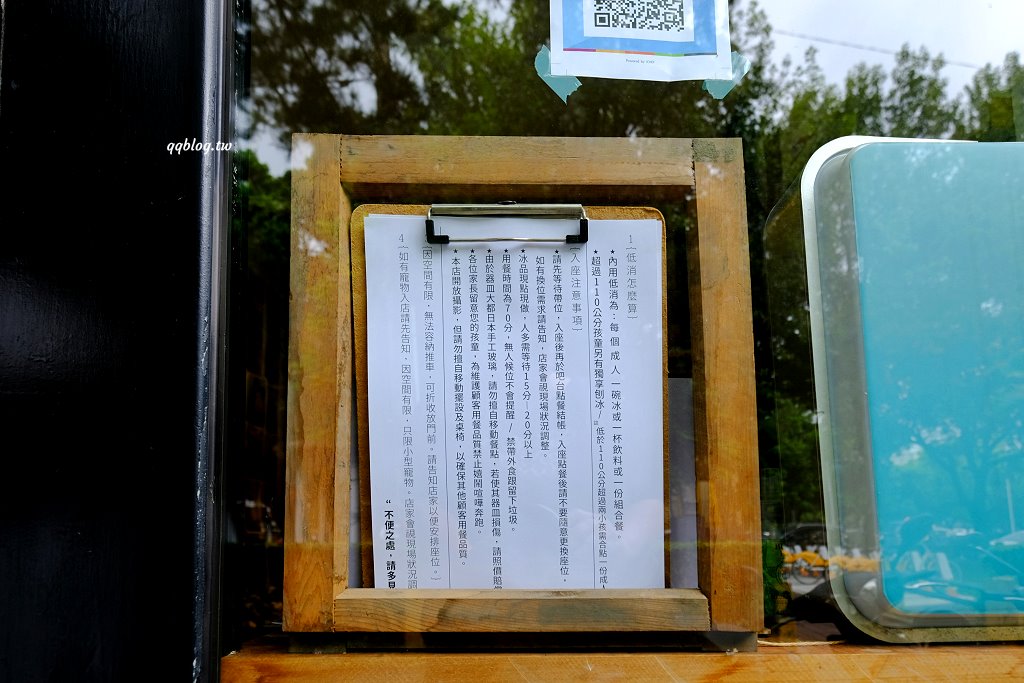 Powered by
qqblog.tw
1〔低消怎麼算〕
★內用低消為：每 個 成 人 一碗冰或一杯飲料或一份組合餐。
★超過110公分孩童另有獨享刨冰/低於110公分超過兩小孩需合點一份成人
〔入座注意事項〕
★請先等待帶位，入座後再於吧台點餐結帳，入座點餐後請不要隨意更換座位。
如有換位需求請告知，店家會視現場狀況調整。
★冰品現點現做，人多需等待15分-20分以上
★用餐時間為70分，無人候位不會提醒/ 禁帶外食跟留下垃圾。
★由於器皿大都日本手工玻璃，請勿擅自移動餐點，若使其器皿損傷，請照價賠償
★各位家長留意您的孩童，為維護顧客用餐品質禁止嬉鬧喧嘩奔跑。
★本店開放攝影，但請勿擅自移動擺設及桌椅，以確保其他顧客用餐品質。
〔因空間有限，無法容納推車，可折收放門前。請告知店家以便安排座位。〕
4〔如有寵物入店請先告知，因空間有限，只限小型寵物。店家會視現場狀況調
“ 不便之處，請多見